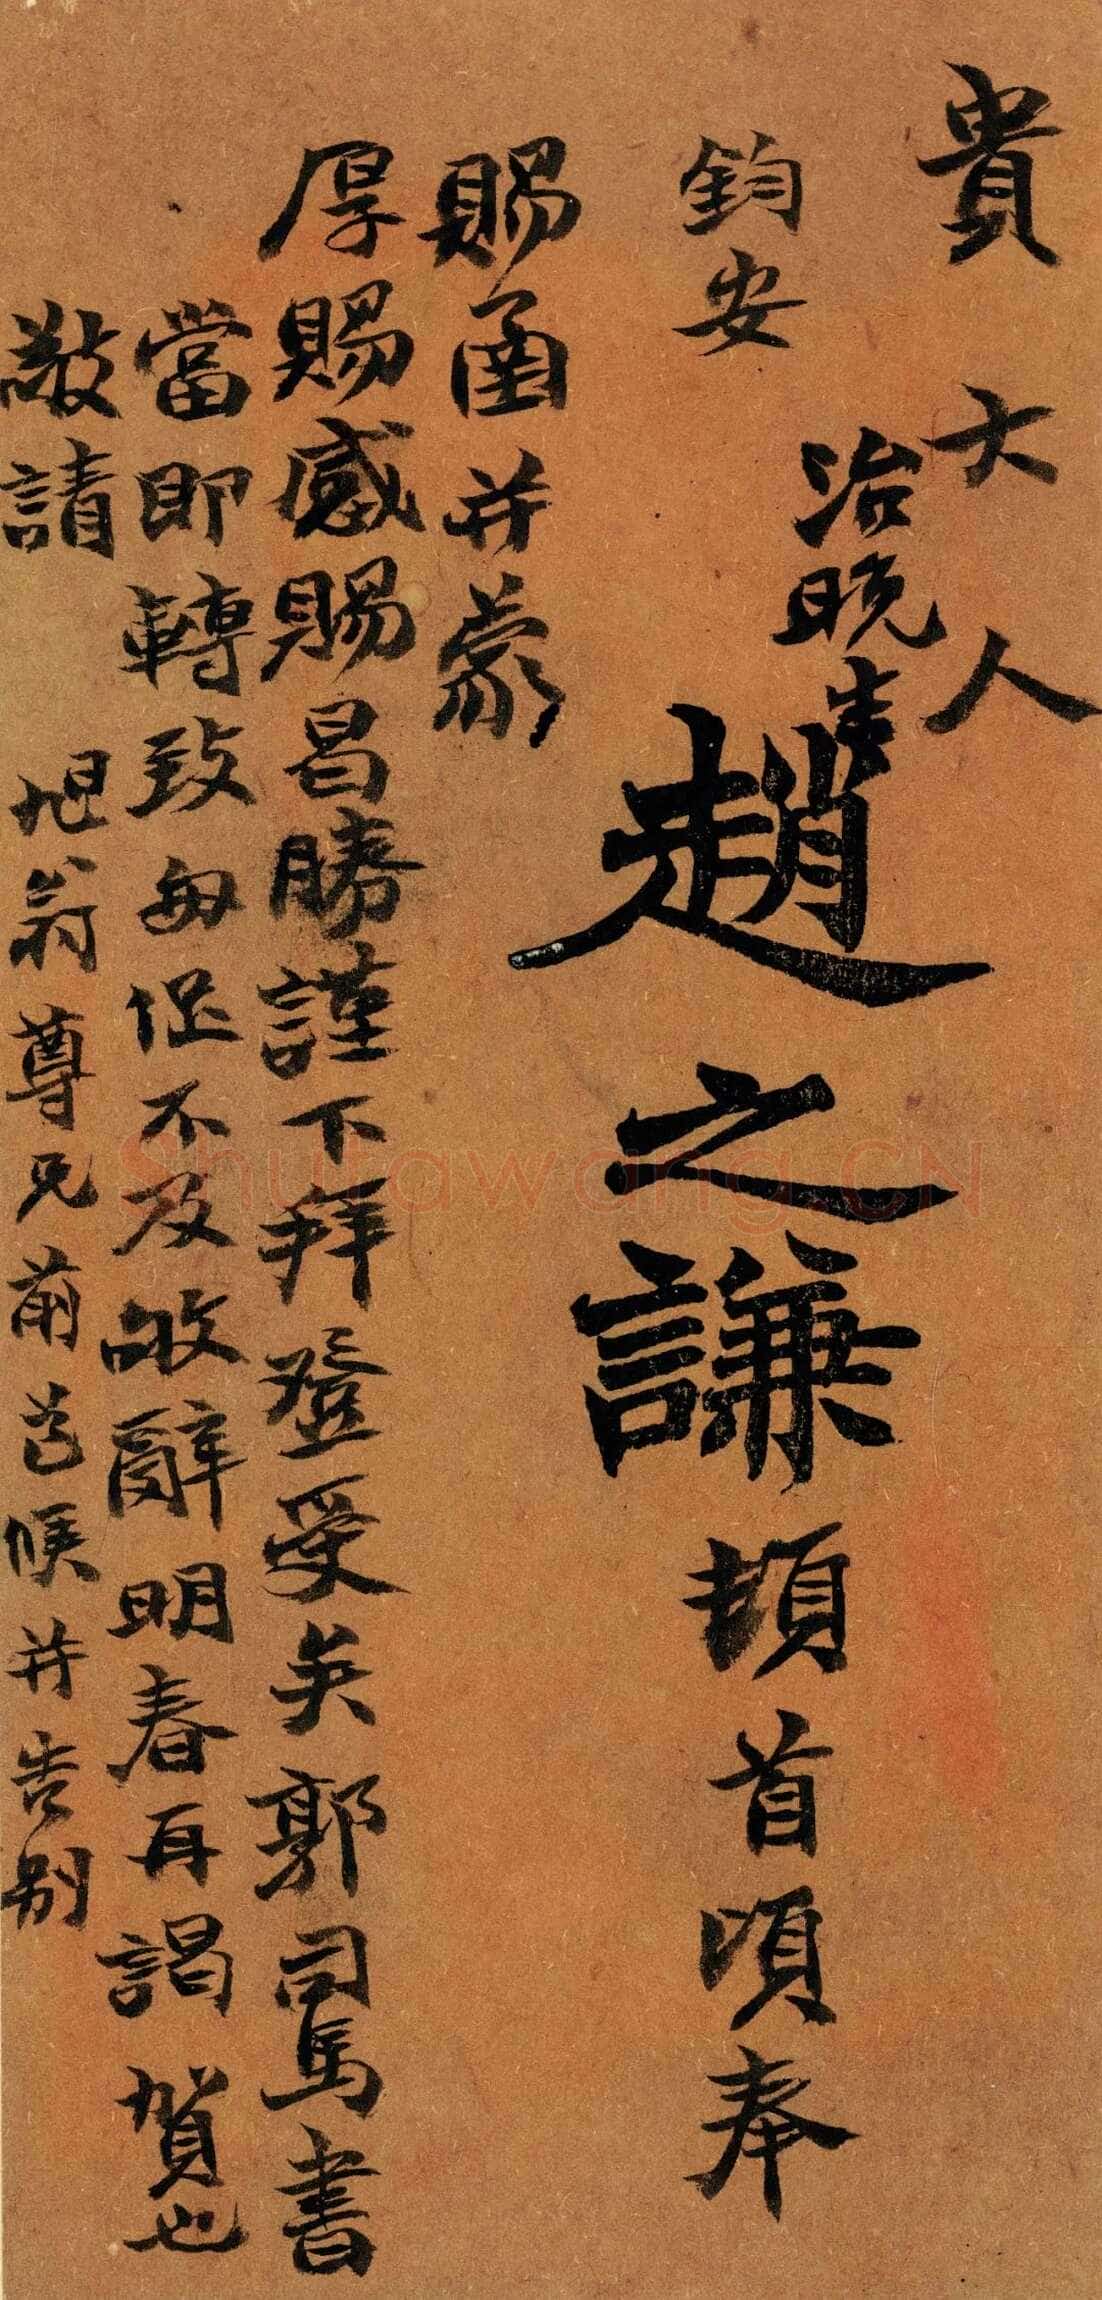 貴大人
治晚生
趙之謙頓首頃奉
賜函并蒙
厚賜感賜曷勝謹下拜登受矣郭司馬書
當即轉致匆促不及敂辭明春再謁賀也
敬請
鈞安
旭翁尊兄前乞候并告别
Shufawang.CN